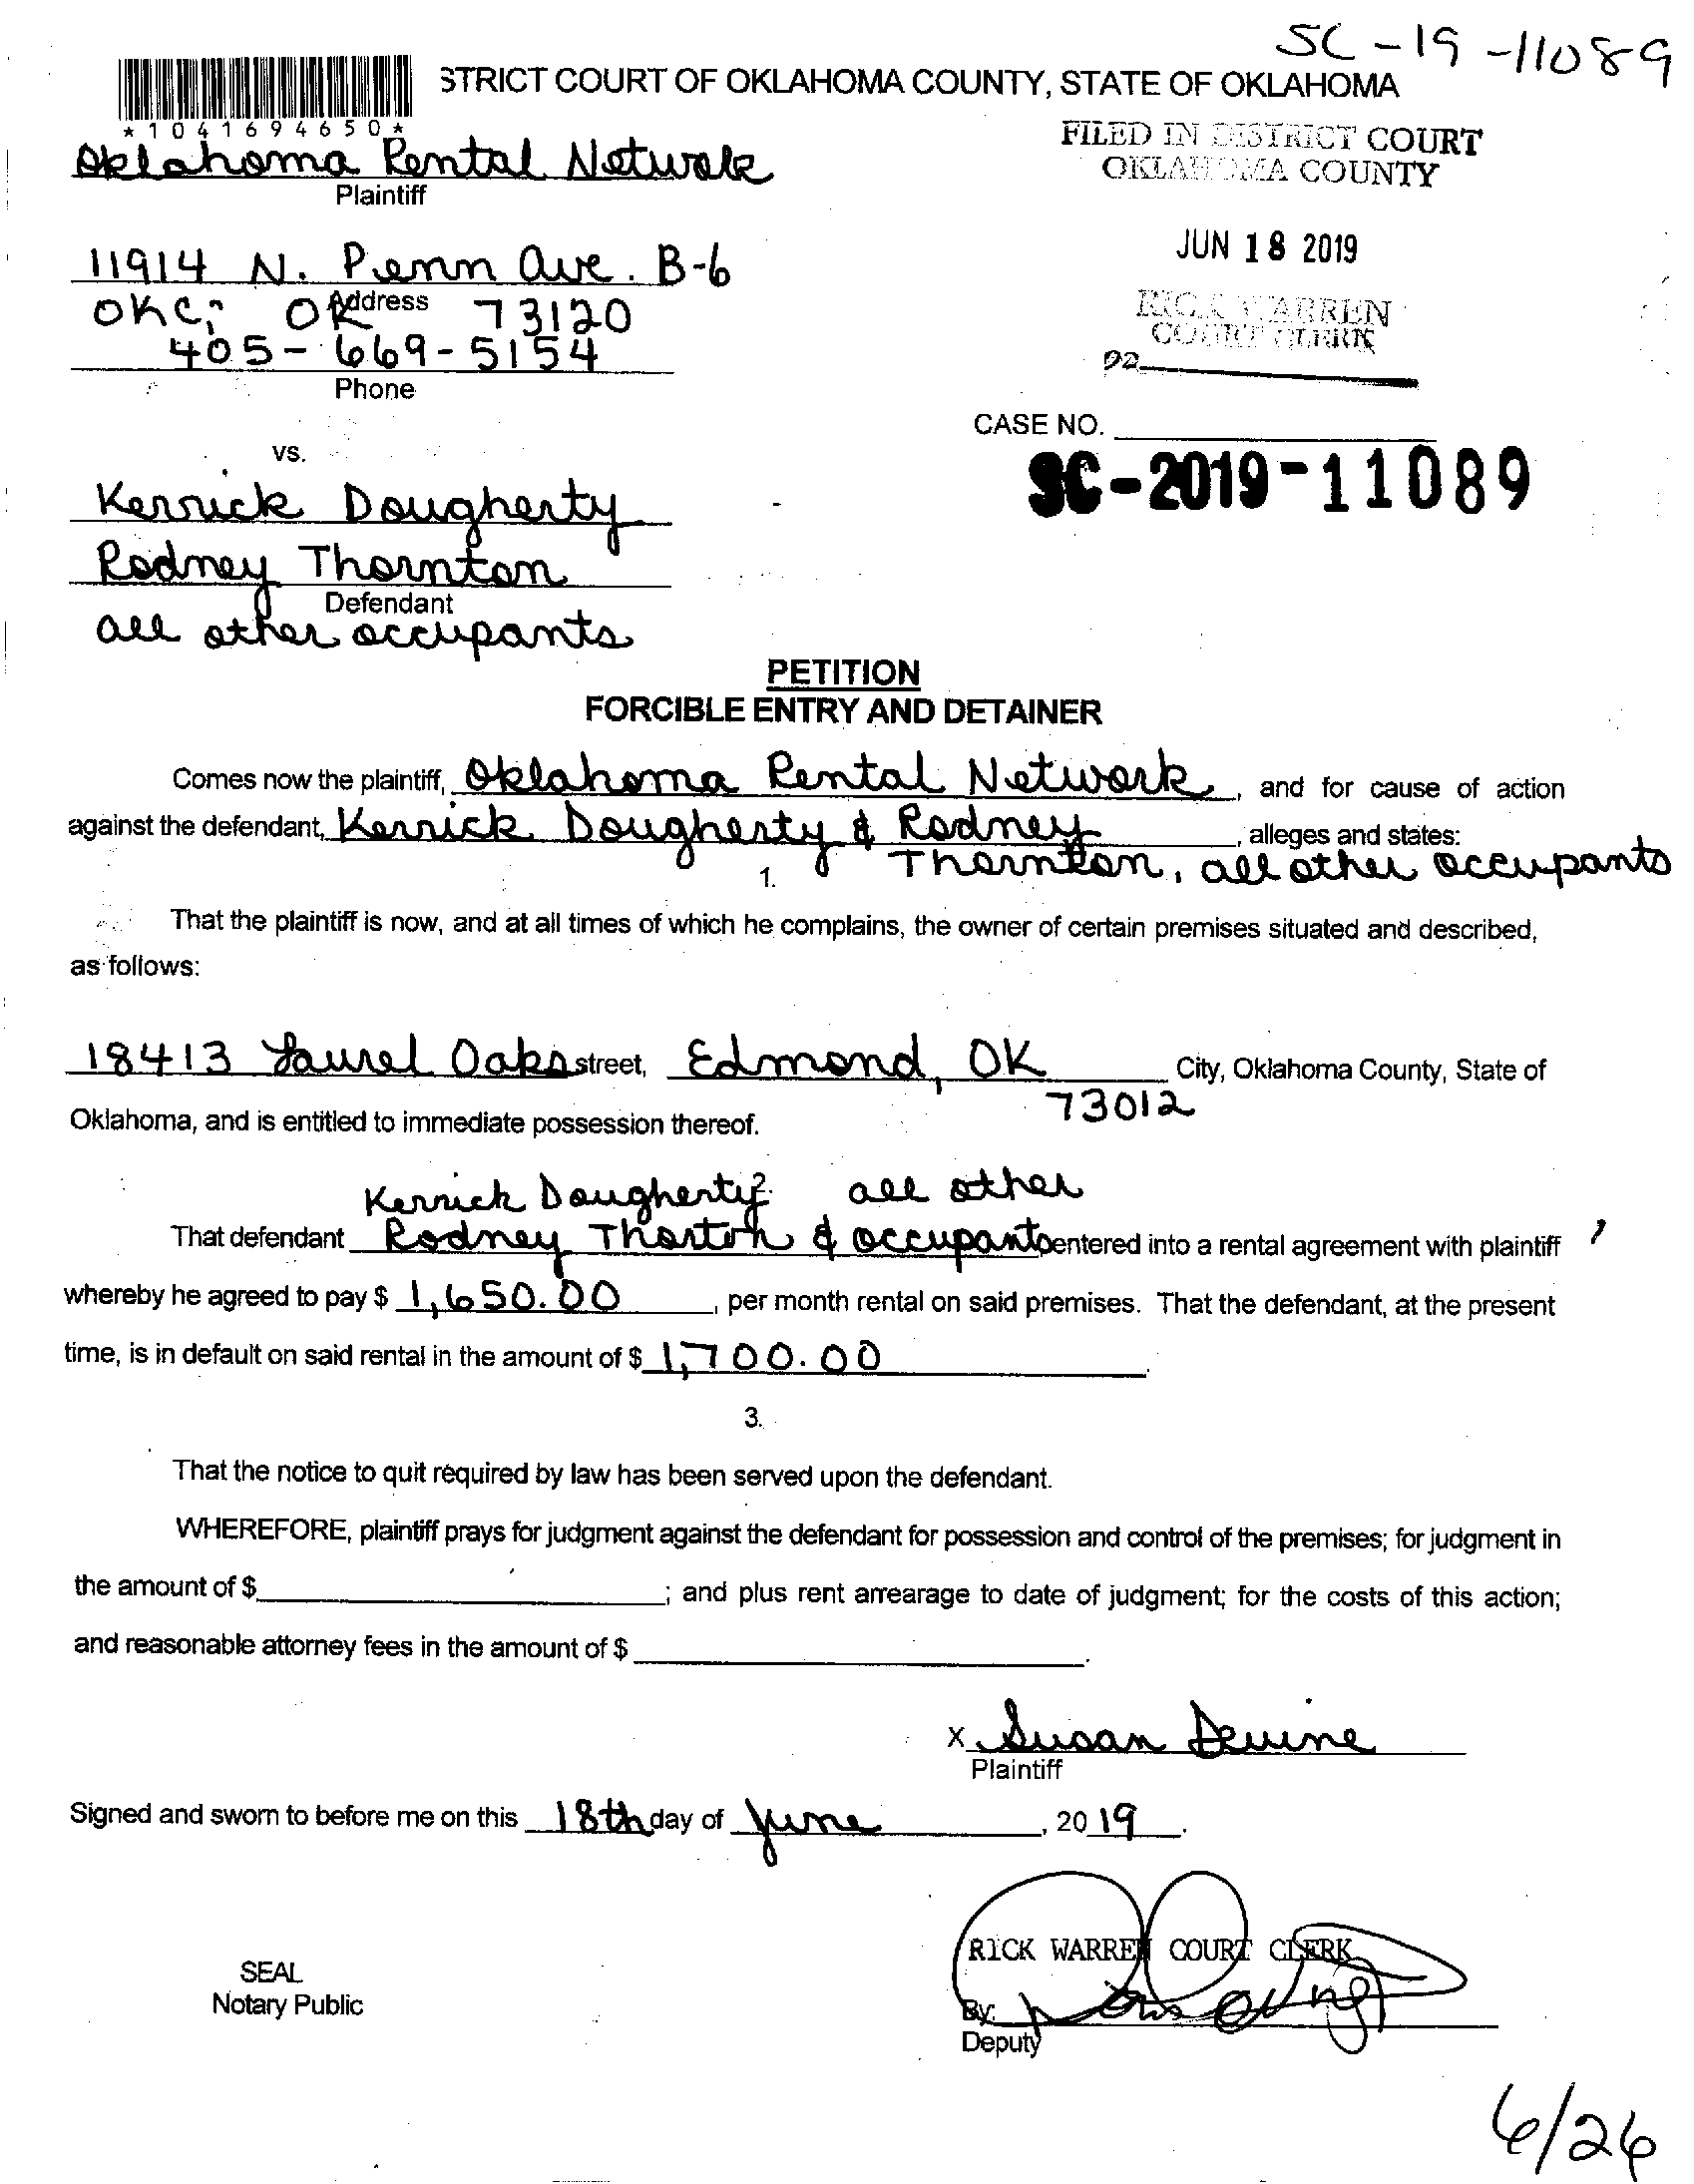 SC-19-11089
STRICT COURT OF OKLAHOMA COUNTY, STATE OF OKLAHOMA
*1041694650*
FILED IN DISTRICT COURT
OKLAHOMA COUNTY
Oklahoma Rental Network
Plaintiff
JUN 18 2019
11914 N. Penn Ave. B-6
Address
OKC, OK 73120
RICK WARREN
COURT CLERK
405-669-5154
Phone
92
CASE NO.
SC-2019-11089
vs.
Kerrick Dougherty
Rodney Thornton
Defendant
all other occupants
PETITION
FORCIBLE ENTRY AND DETAINER
Comes now the plaintiff, Oklahoma Rental Network, and for cause of action
against the defendant, Kerrick Dougherty & Rodney, alleges and states:
Thornton, all other occupants
1.
That the plaintiff is now, and at all times of which he complains, the owner of certain premises situated and described,
as follows:
18413 Laurel Oaks street, Edmond, OK City, Oklahoma County, State of
73012
Oklahoma, and is entitled to immediate possession thereof.
Kerrick Dougherty 2. all other
That defendant Rodney Thorton & occupants entered into a rental agreement with plaintiff
whereby he agreed to pay $ 1,650.00, per month rental on said premises. That the defendant, at the present
time, is in default on said rental in the amount of $ 1,700.00.
3.
That the notice to quit required by law has been served upon the defendant.
WHEREFORE, plaintiff prays for judgment against the defendant for possession and control of the premises; for judgment in
the amount of $ ; and plus rent arrearage to date of judgment; for the costs of this action;
and reasonable attorney fees in the amount of $ .
X Susan Devine
Plaintiff
Signed and sworn to before me on this 18th day of June, 20 19.
RICK WARREN COURT CLERK
SEAL
Notary Public
By:
Deputy
6/26